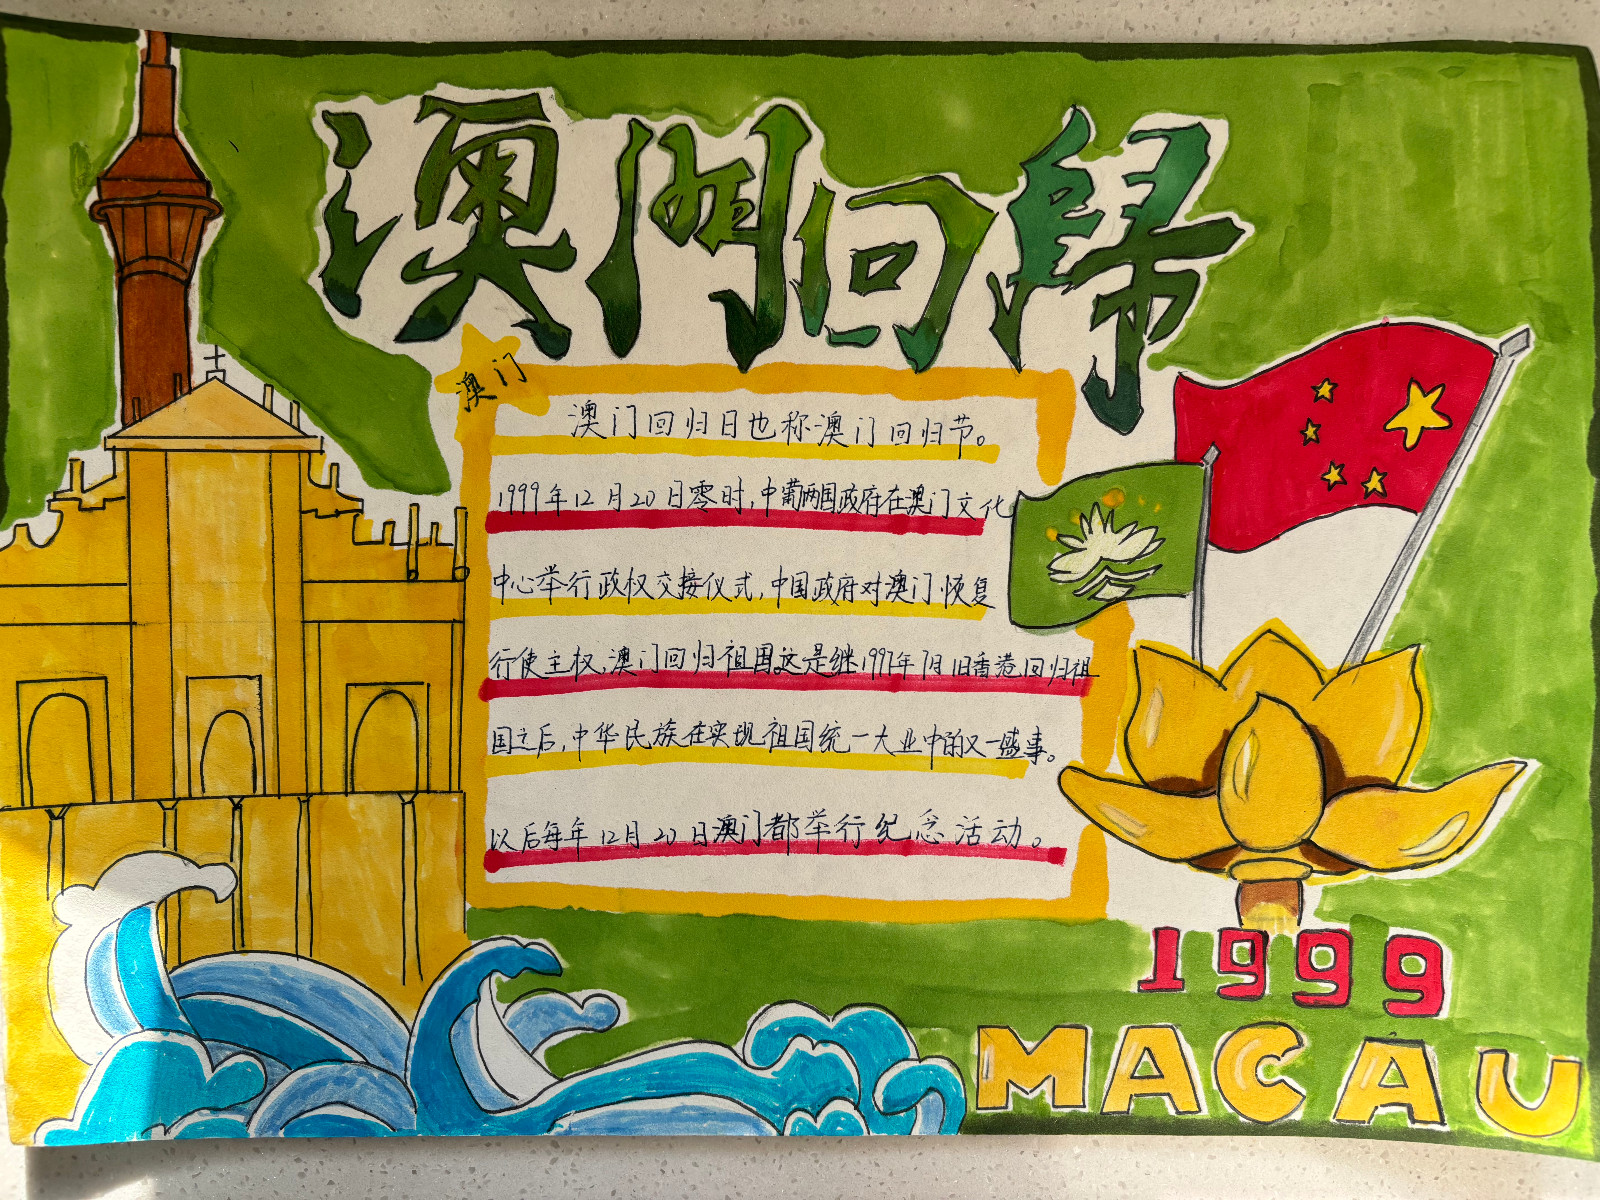 澳門回歸
澳门
澳门回归日也称澳门回归节。
1999年12月20日零时,中葡两国政府在澳门文化
中心举行政权交接仪式,中国政府对澳门恢复
行使主权,澳门回归祖国。这是继1997年7月1日香港回归祖
国之后,中华民族在实现祖国统一大业中的又一盛事。
以后每年12月20日澳门都举行纪念活动。
1999
MACAU